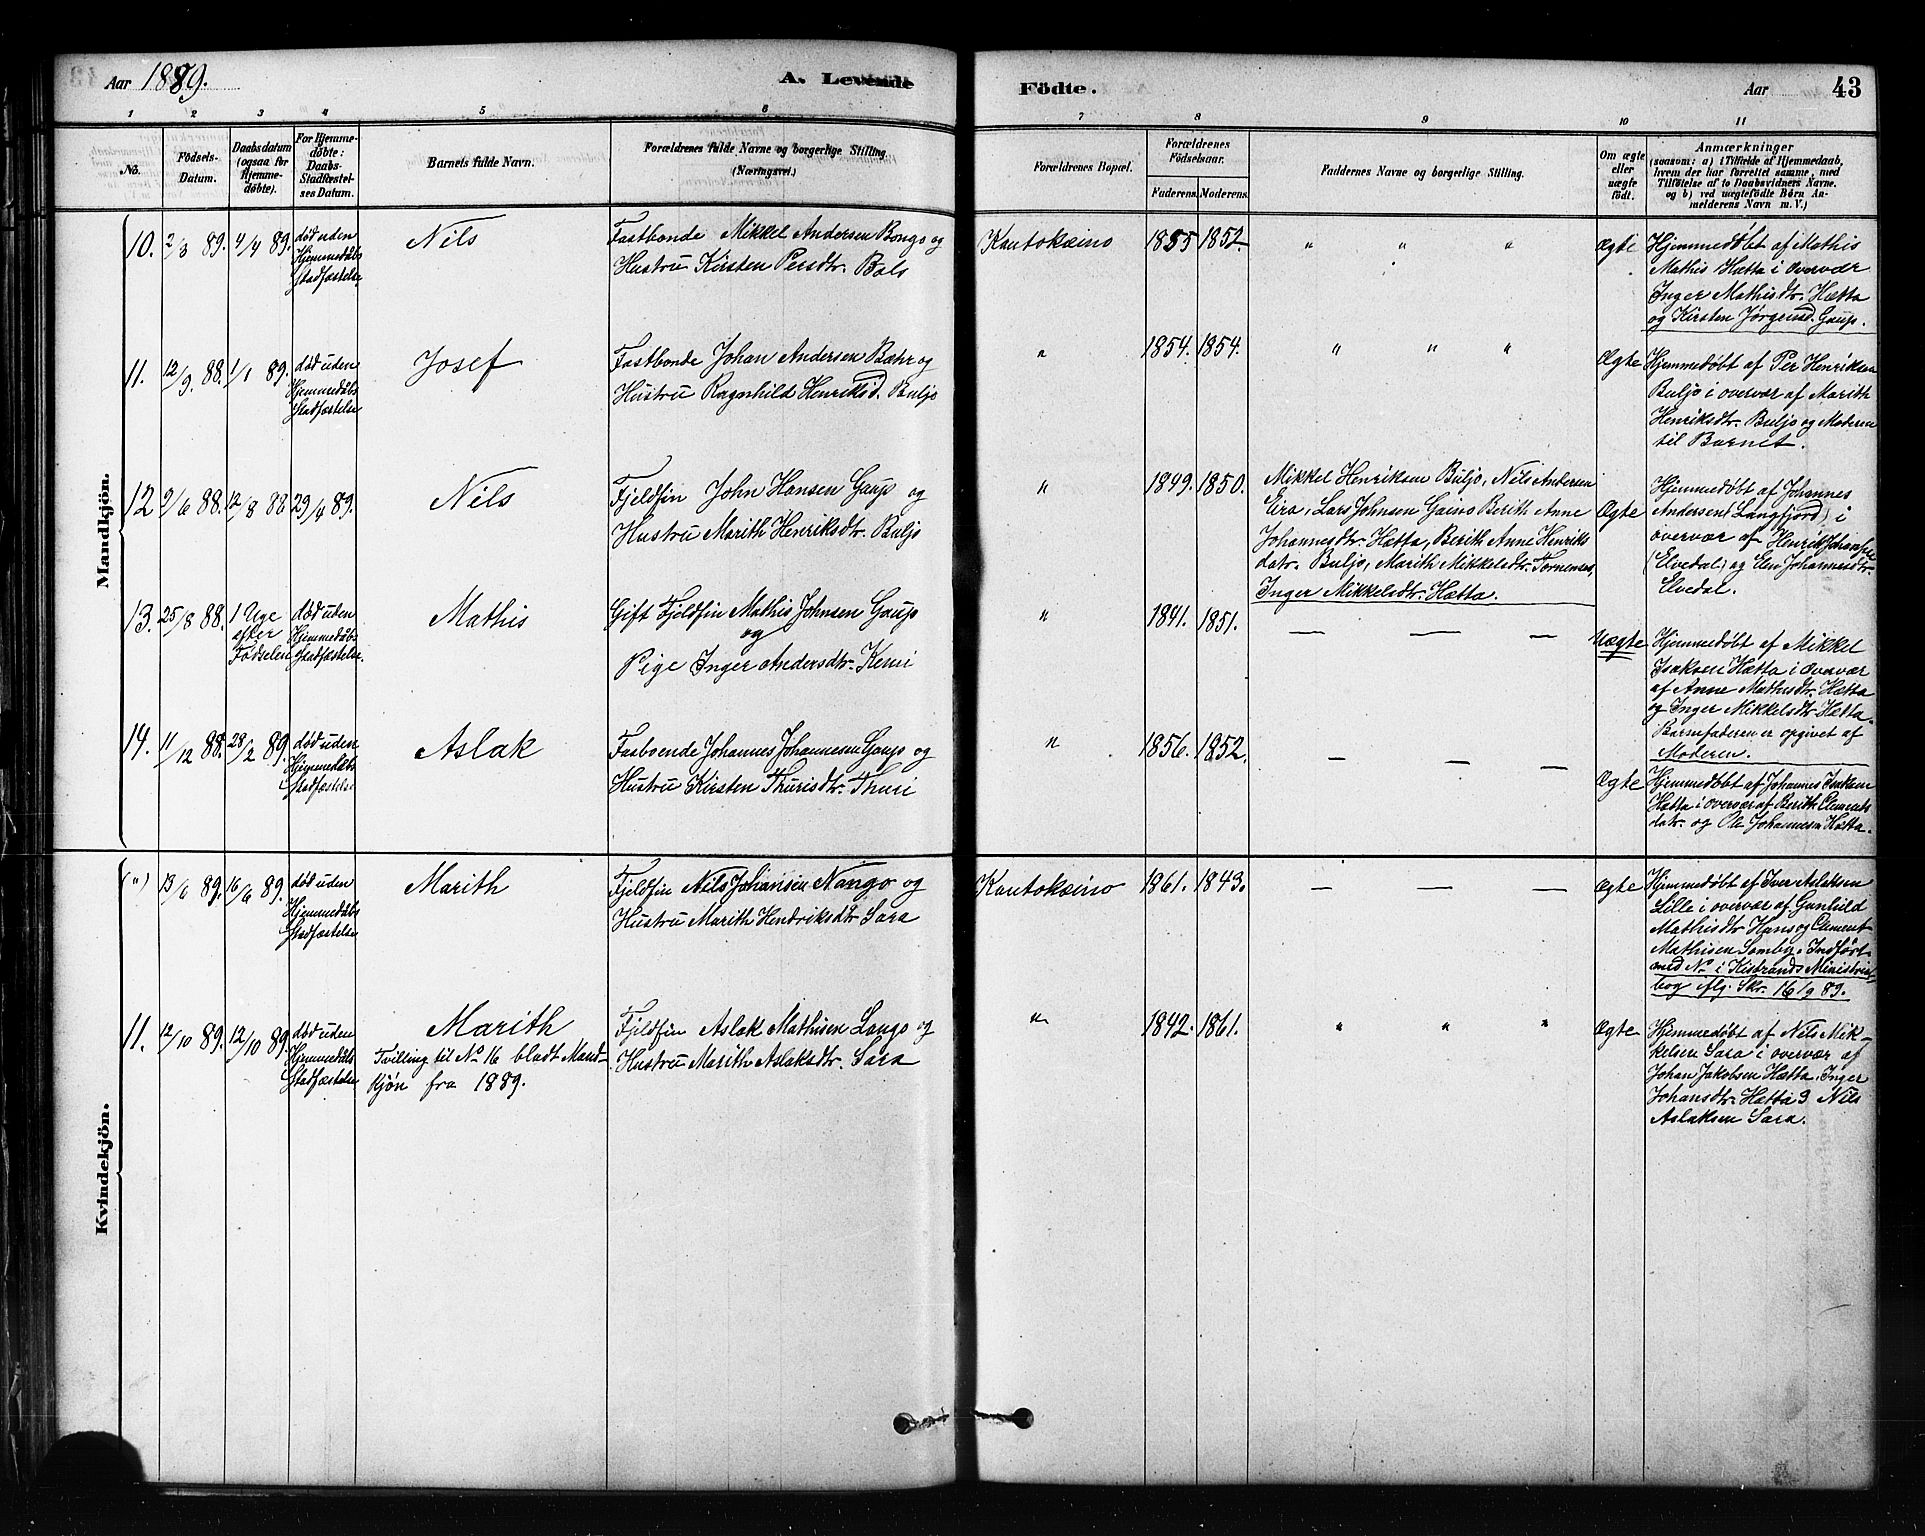 Aar 1889.
A. Levende
Födte.
Aar
43
1 2 3 4 5 6 7 8 9 10 11
No.
Födsels-
Datum.
Daabsdatum
(ogsaa for
Hjemme-
döbte).
For Hjemme-
döbte:
Daabs-
Stadfæstel-
ses Datum.
Barnets fulde Navn.
Forældrenes fulde Navne og borgerlige Stilling
(Næringsvei.)
Forældrenes Bopæl.
Forældrenes
Födselsaar.
Faderens. Moderens.
Faddernes Navne og borgerlige Stilling.
Om ægte
eller
uægte
födt.
Anmærkninger
(saasom: a) i Tilfælde af Hjemmedaab,
hvem der har forrettet samme, med
Tilföielse af to Daabsvidners Navne.
og b) ved uægtefödte Börn An-
melderens Navn m. V.)
Mandkjön.
10. 2/3 89. 4/4 89.
død uden
Hjemmedåbs
Stadfæstelse
Nils
Fastbonde Mikkel Andersen Bongo og
Hustru Kirsten Persdtr. Bals
Kautokæino
1855 1852
" " "
Ægte
Hjemmedøbt af Mathis
Mathis Hætta i Overvær
Inger Mathisdtr. Hætta
og Kirsten Jørgensd. Gaup.
11. 12/9 88. 1/1 89.
død uden
Hjemmedåbs
Stadfæstelse
Josef
Fastbonde Johan Andersen Bæhr og
Hustru Ragnhild Henriksd. Buljo
"
1854. 1854.
" " "
Ægte
Hjemmedøbt af Per Henriksen
Buljo i overvær af Marith
Henriksdtr. Buljo og Moderen
til Barnet.
12 2/6 88. 12/8 88 29/4 89.
Nils
Fjeldfin John Hansen Gaup og
Hustru Marith Henriksdtr. Buljo
"
1849. 1850.
Mikkel Henriksen Buljo, Nils Andersen
Eira, Lars Johnsen Gaino Berith Anne
Johannesdtr. Hætta, Berith Anne Henriks
datr. Buljo, Marith Mikkelsdtr. Tornensis,
Inger Mikkelsdtr. Hætta.
Ægte
Hjemmedøbt af Johannes
Andersen (Langfjord) i
overvær af Henrik Johansen
(Elvedal) og Elen Johannesdtr.
Elvedal.
13. 25/8 88.
1 Uge
efter
Fødselen
død uden
Hjemmedåbs
Stadfæstelse.
Mathis
Gift Fjeldfin Mathis Johnsen Gaup
og
Pige Inger Andersdtr. Kemi
"
1841. 1851.
— — —
Uægte
Hjemmedøbt af Mikkel
Isaksen Hætta i Overvær
af Anne Mathisdtr. Hætta
og Inger Mikkelsdtr. Hætta.
Barnefaderen er opgivet af
Moderen.
14. 11/12 88. 28/2 89.
død uden
Hjemmedåbs
Stadfæstelse
Aslak
Fasboende Johannes Johannesen Gaup og
Hustru Kirsten Thurisdtr. Thuri
"
1856. 1852.
— — —
Ægte
Hjemmedøbt af Johannes Isaksen
Hætta i overvær af Berith Clements
datr. og Ole Johannesen Hætta.
Kvindekjön.
(") 13/6 89. 16/6 89.
død uden
Hjemmedåbs
Stadfæstelse
Marith
Fjeldfin Nils Johansen Nango og
Hustru Marith Hendriksdtr Sara
Kautokæino
1861. 1843.
— — —
Ægte
Hjemmedøbt af Iver Aslaksen
Lille i overvær af Gunhild
Mathisdtr Hans og Clement
Mathisen Somby. Indført
med No i Kistrands Ministerial
bog iflg. Skr. 16/9 89.
11. 12/10 89. 12/10 89.
død uden
Hjemmedåbs
Stadfæstelse
Marith
Tvilling til No 16 bladt Mand-
kjøn fra 1889.
Fjeldfin Aslak Mathisen Lango og
Hustru Marith Aslaksdtr. Sara
"
1842. 1861.
" " "
Ægte
Hjemmedøbt af Nils Mik-
kelsen Sara i overvær af
Johan Jakobsen Hætta, Inger
Johansdtr. Hætta & Nils
Aslaksen Sara.